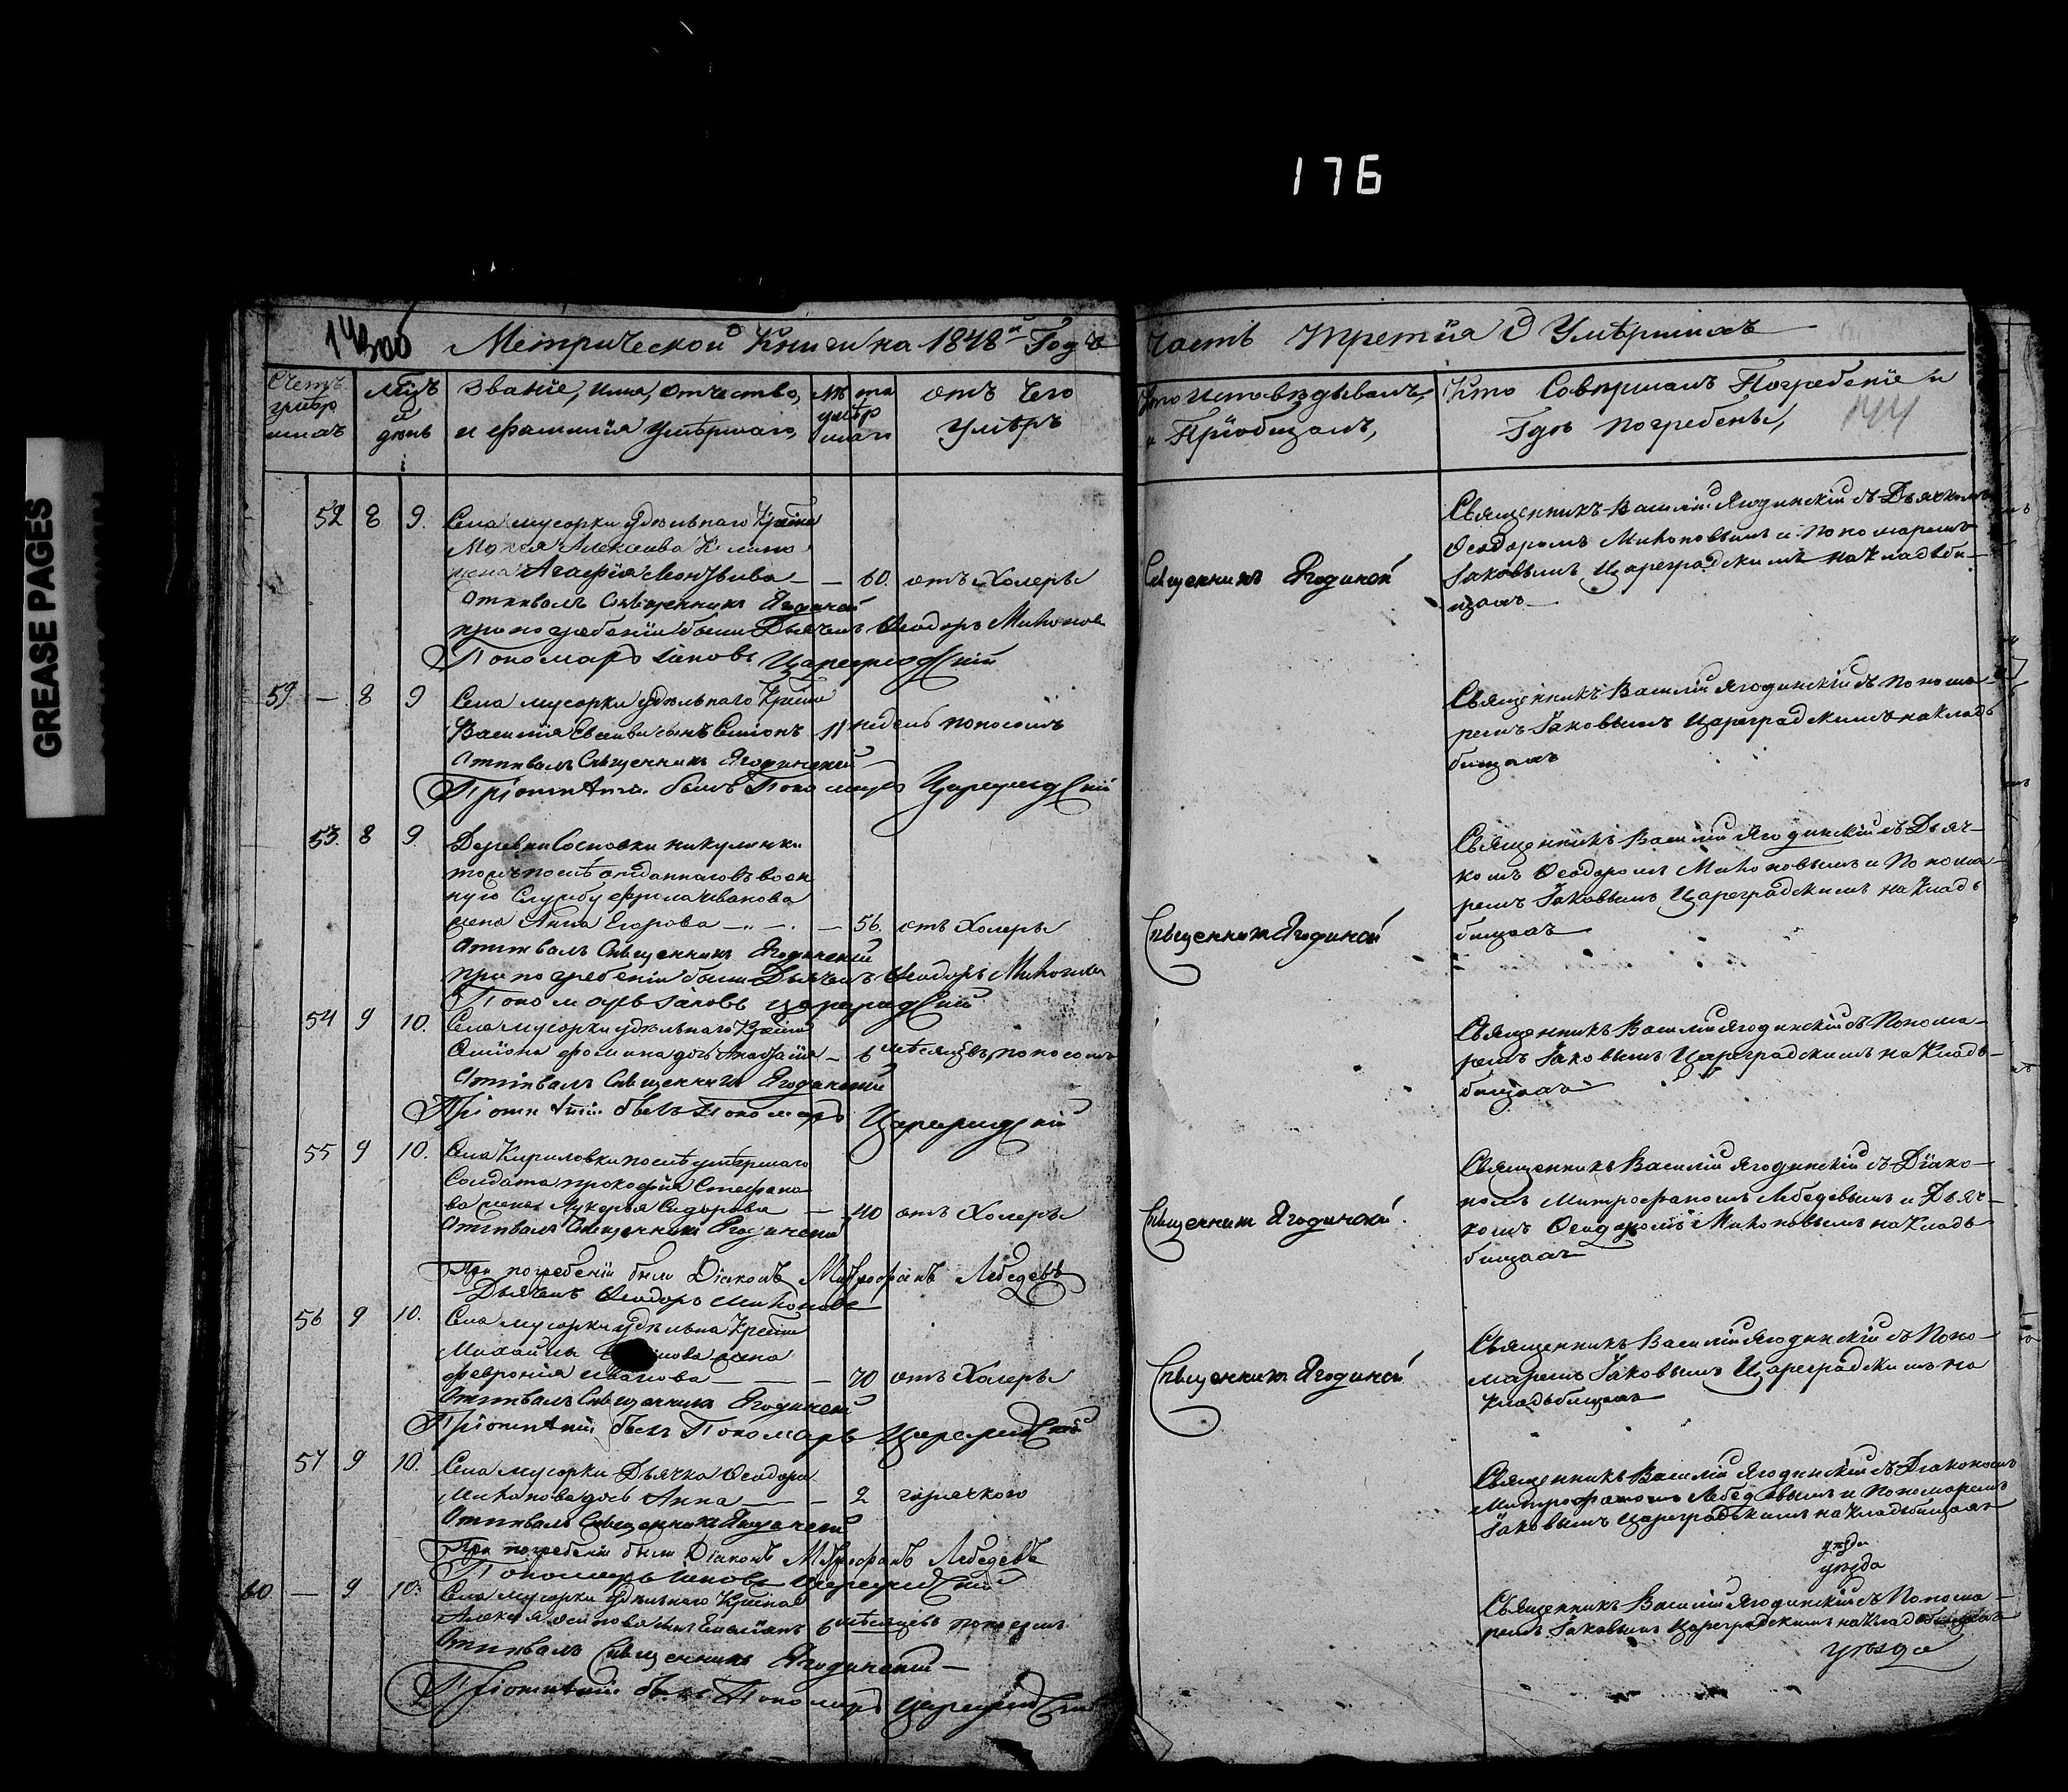 GREASE PAGES
176
Метрической Книги на 1848й Годъ
Часть третія о Умѣршихъ
Счетъ умѣршихъ
Мцъ и день
Званіе, имя, отчество, и фамилія умѣршаго,
Лѣта умѣршаго
отъ чего умѣръ
Кто исповѣдывалъ, и Пріобщалъ,
Кто Совершалъ Погребеніе и Гдѣ погребены,
144
52 8 9. Села мусорки удѣльнаго Крестья
жена Агафія
60. отъ Холеры
Отпѣвалъ Священникъ Ягодинской
при погребеніи были Дьячекъ Ѳеодоръ Михоновъ
Пономарь Іаковъ Цареградскій
Священникъ Ягодиной
Священникъ Василій Ягодинскій съ Дьячкомъ
Ѳеодоромъ Михоновымъ и Пономаремъ
Іаковымъ Цареградскимъ на Кладби-
щахъ
59 — 8 9 Села мусорки удѣльнаго Крестья
Василія сынъ Симонъ 11 недель поносомъ
Отпѣвалъ Священникъ Ягодинской
При отпѣтіи былъ Пономарь Цареградскій
Священникъ Василій Ягодинскій съ Понома-
ремъ Іаковымъ Цареградскимъ на Кладь
бищахъ
53. 8 9. Деревни Сосновки
отданнаго въ воен
ную Службу Фрола Иванова
жена Анна Егорова — 56. отъ Холеры
Отпѣвалъ Священникъ Ягодинской
при погребеніи были Дьячекъ Ѳеодоръ Михоновъ
Пономарь Іаковъ Цареградскій
Священникъ Ягодиной
Священникъ Василій Ягодинскій съ Дьяч-
комъ Ѳеодоромъ Михоновымъ и Понома-
ремъ Іаковымъ Цареградскимъ на Кладь
бищахъ
54 9 10. Села мусорки удѣльнаго Крестья
Фомина дочь — 6 мѣсяцевъ поносомъ
Отпѣвалъ Священникъ Ягодинской
При отпѣтіи былъ Пономарь Цареградскій
Священникъ Василій Ягодинскій съ Понома-
ремъ Іаковымъ Цареградскимъ на Кладь-
бищахъ
55 9 10. Села Кириловки послѣ умѣршаго
Солдата Прокофія Стефано
ва жена Лукерья Сидорова — 40 отъ Холеры
Отпѣвалъ Священникъ Ягодинской
При погребеніи были Діаконъ Митрофанъ Лебедевъ
Дьячекъ Ѳеодоръ Михоновъ
Священникъ Ягодинской.
Священникъ Василій Ягодинскій съ Діако-
номъ Митрофаномъ Лебедевымъ и Дьяч-
комъ Ѳеодоромъ Михоновымъ на Кладь
бищахъ
56 9 10. Села мусорки удѣльна Крестья
Михайлы жена
Феврония Иванова — 70 отъ Холеры
Отпѣвалъ Священникъ Ягодинской
При отпѣтіи былъ Пономарь Цареградскій
Священникъ Ягодиной
Священникъ Василій Ягодинскій съ Поно-
маремъ Іаковымъ Цареградскимъ на
Кладьбищахъ
57 9 10. Села мусорки Дьячка Ѳеодора
Михонова дочь Анна — 2 горячкою
Отпѣвалъ Священникъ Ягодинской
При погребеніи были Діаконъ Митрофанъ Лебедевъ
Пономарь Іаковъ Цареградскій
Священникъ Василій Ягодинскій съ Діакономъ
Митрофаномъ Лебедевымъ и Пономаремъ
Іаковымъ Цареградскимъ на Кладьбищахъ
уѣзда
60 — 9 10. Села мусорки удѣльнаго Крестья
Алексѣя сынъ 6 мѣсяцевъ поносомъ
Отпѣвалъ Священникъ Ягодинской
При отпѣтіи былъ Пономарь Цареградскій
Священникъ Василій Ягодинскій съ Понома-
ремъ Іаковымъ Цареградскимъ на Кладбищахъ
уѣзда